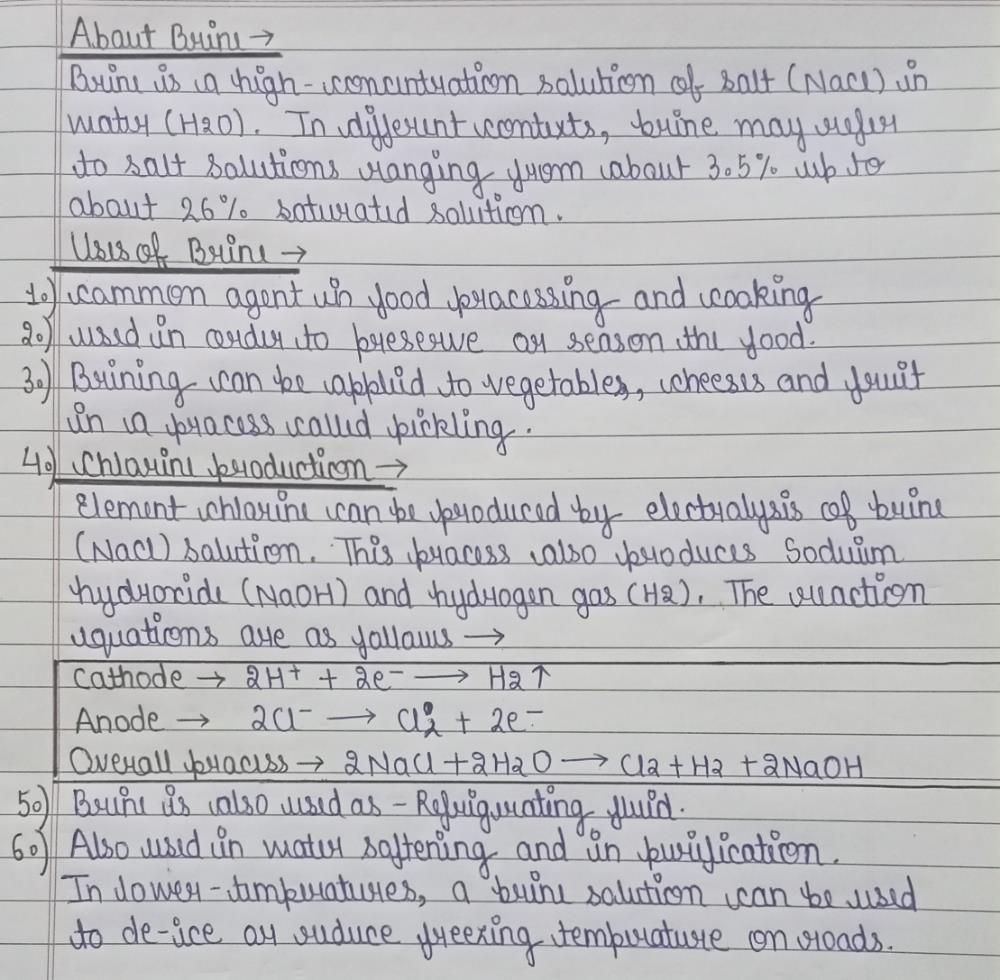 About Brine →
Brine is a high-concentration solution of salt (NaCl) in
water (H2O). In different contexts, brine may refer
to salt solutions ranging from about 3.5% up to
about 26% saturated solution.
Uses of Brine →
1.) Common agent in food processing and cooking
2.) used in order to preserve or season the food.
3.) Brining can be applied to vegetables, cheeses and fruit
in a process called pickling.
4.) Chlorine production →
Element chlorine can be produced by electrolysis of brine
(NaCl) solution. This process also produces Sodium
hydroxide (NaOH) and hydrogen gas (H2). The reaction
equations are as follows →
Cathode → 2H⁺ + 2e⁻ → H2↑
Anode → 2Cl⁻ → Cl⁰2 + 2e⁻
Overall process → 2NaCl + 2H2O → Cl2 + H2 + 2NaOH
5.) Brine is also used as - Refrigerating fluid.
6.) Also used in water softening and in purification.
In lower-temperatures, a brine solution can be used
to de-ice or reduce freezing temperature on roads.